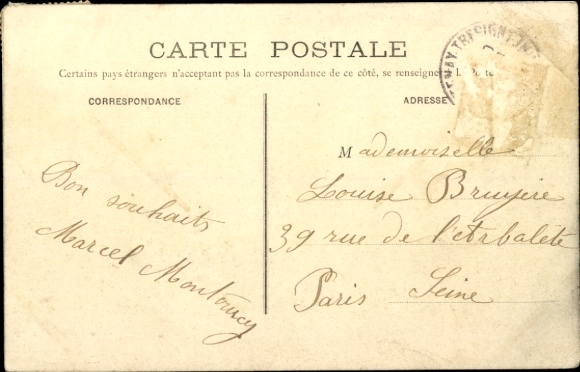 CARTE POSTALE
Certains pays étrangers n'acceptant pas la correspondance de ce côté, se renseigner à la Poste
CORRESPONDANCE
ADRESSE
Bon souhaits
Marcel
Mademoiselle
Louise Bruyère
39 rue de l'Arbalete
Paris Seine